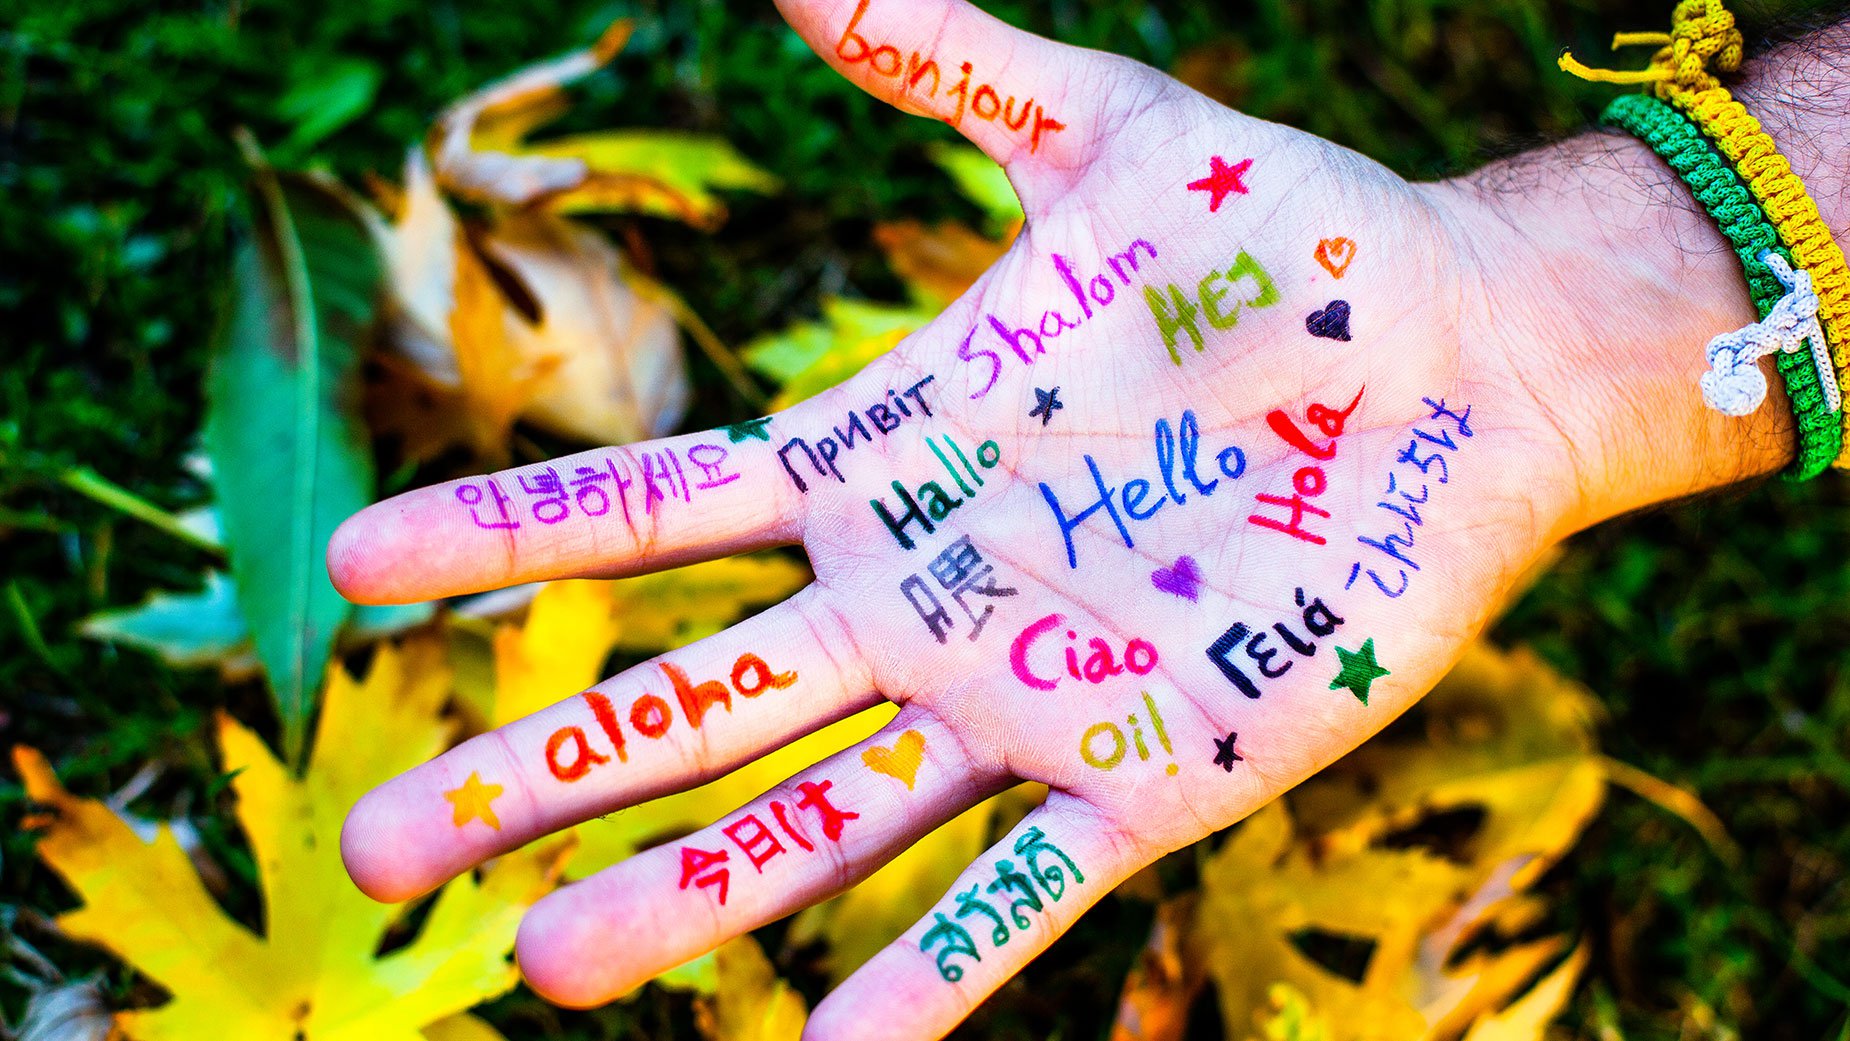 bonjour
Shalom
HEJ
Привіт
안녕하세요
Hallo
Hello
Hola
喂
Ciao
Γειά
aloha
Oi!
今日は
สวัสดี